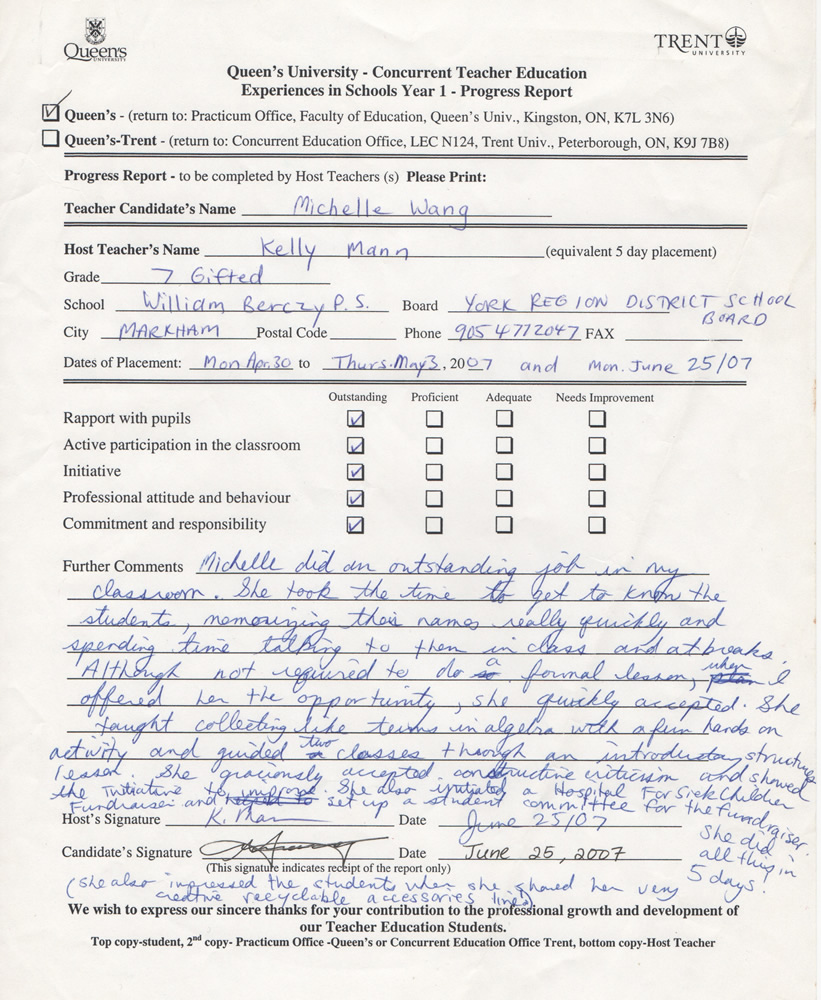 Queen's
UNIVERSITY
TRENT
UNIVERSITY
Queen's University - Concurrent Teacher Education
Experiences in Schools Year 1 - Progress Report
Queen's - (return to: Practicum Office, Faculty of Education, Queen's Univ., Kingston, ON, K7L 3N6)
Queen's-Trent - (return to: Concurrent Education Office, LEC N124, Trent Univ., Peterborough, ON, K9J 7B8)
Progress Report - to be completed by Host Teachers (s) Please Print:
Teacher Candidate's Name Michelle Wang
Host Teacher's Name Kelly Mann (equivalent 5 day placement)
Grade 7 Gifted
School William Berczy P.S. Board YORK REGION DISTRICT SCHOOL
BOARD
City MARKHAM Postal Code Phone 905 4772047 FAX
Dates of Placement: Mon Apr. 30 to Thurs. May 3, 2007 and Mon. June 25/07
Outstanding Proficient Adequate Needs Improvement
Rapport with pupils
Active participation in the classroom
Initiative
Professional attitude and behaviour
Commitment and responsibility
Further Comments Michelle did an outstanding job in my
classroom. She took the time to get to know the
students, memorizing their names really quickly and
spending time talking to them in class and at breaks.
Although not required to do a formal lesson, when I
offered her the opportunity, she quickly accepted. She
taught collecting like terms in algebra with a fun hands on
activity and guided two classes through an introductory structures
lesson. She graciously accepted constructive criticism and showed
the initiative to improve. She also initiated a Hospital For Sick Children
Fundraiser and set up a student committee for the fundraiser.
Host's Signature K. Mann Date June 25/07
She did
all this in
5 days!
Candidate's Signature Date June 25, 2007
(This signature indicates receipt of the report only)
(she also impressed the students when she showed her very
creative recyclable accessories line)
We wish to express our sincere thanks for your contribution to the professional growth and development of
our Teacher Education Students.
Top copy-student, 2nd copy- Practicum Office -Queen's or Concurrent Education Office Trent, bottom copy-Host Teacher